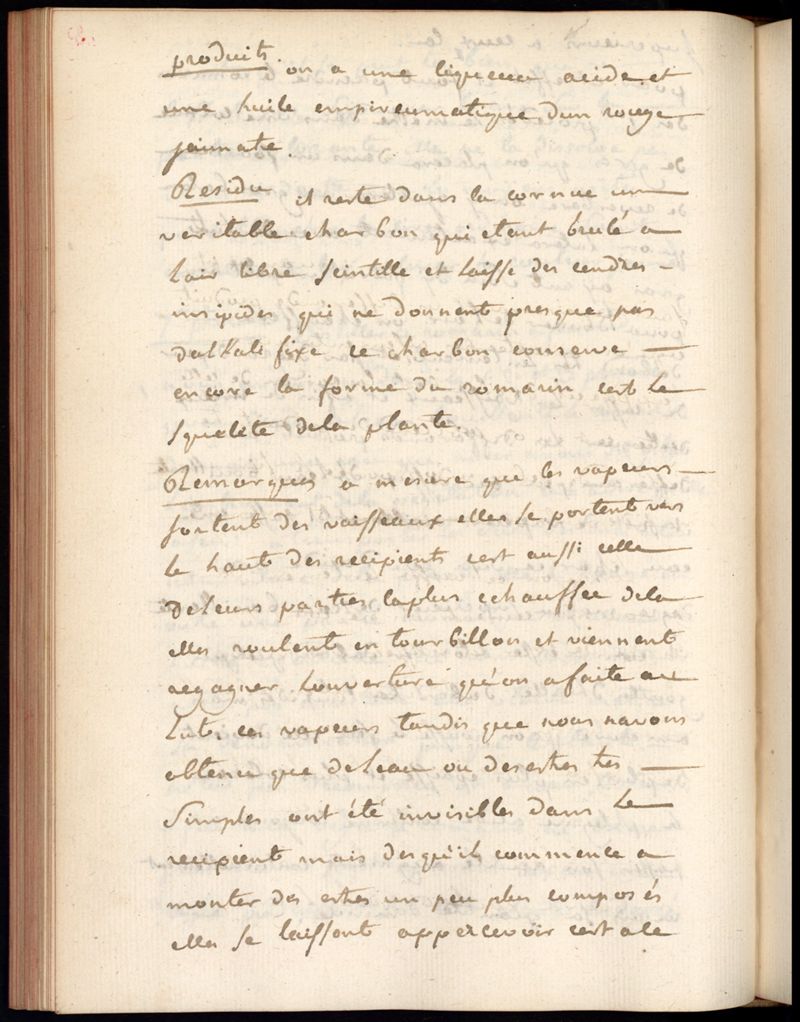 produits. on a une liqueur acide et
une huile empireumatique dun rouge
jaunatre.
Residu il reste dans la cornue un
veritable charbon qui etant brulé a
lair libre scintille et laisse des cendres
insipides qui ne donnent presque pas
dalkali fixe ce charbon conserve
encore la forme du romarin, cest le
squelete dela plante.
Remarques a mesure que les vapeurs
sortent des vaisseaux elles se portent vers
le haut des recipients cest aussi celle
deleurs parties laplus echauffée dela
elles roulent en tourbillon et viennent
regagner louverture qu'on a faite au
Lut, ces vapeurs tandis que nous navons
obtenu que deleau ou des ethes tres
simples ont été invisibles dans le
recipient mais des qu'il commence a
monter des ethes un peu plus composés
elles se laissent appercevoir cest ale